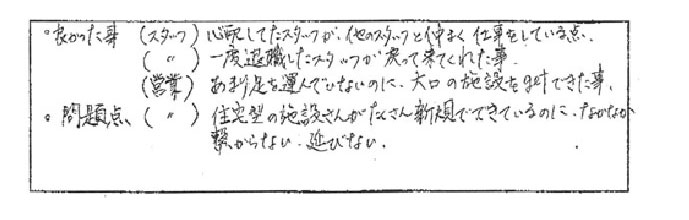 ・良かった事 (スタッフ) 心配してたスタッフが、他のスタッフと仲よく仕事をしている点。
(〃) 一度退職したスタッフが戻って来てくれた事。
(営業) あまり足を運んでいないのに、大口の施設を獲得できた事。
・問題点 (〃) 住宅型の施設さんがたくさん新規でできているのに、なかなか
繋がらない 延びない。